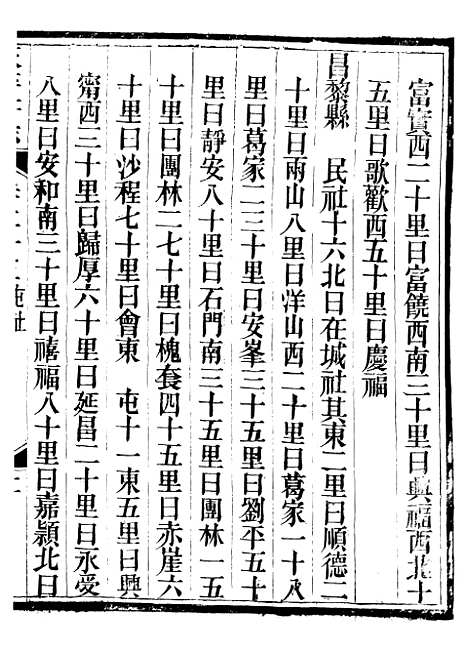 富實西二十里日富饒西南三十里日興福西北十
五里日歌歡西五十里日慶福
昌黎縣 民社十六北日在城社其東二里日順德二
十里日兩山八里日洋山西二十里日葛家一十八
里日葛家二三十里日安峯三十五里日劉平五十
里日靜安八十里日石門南三十五里日團林一五
十里日團林二七十里日槐套四十五里日赤崖六
十里日沙程七十里日會東 屯十一東五里日興
甯西三十里日歸厚六十里日延昌二十里日永受
八里日安和南三十里日禧福八十里日嘉穎北日